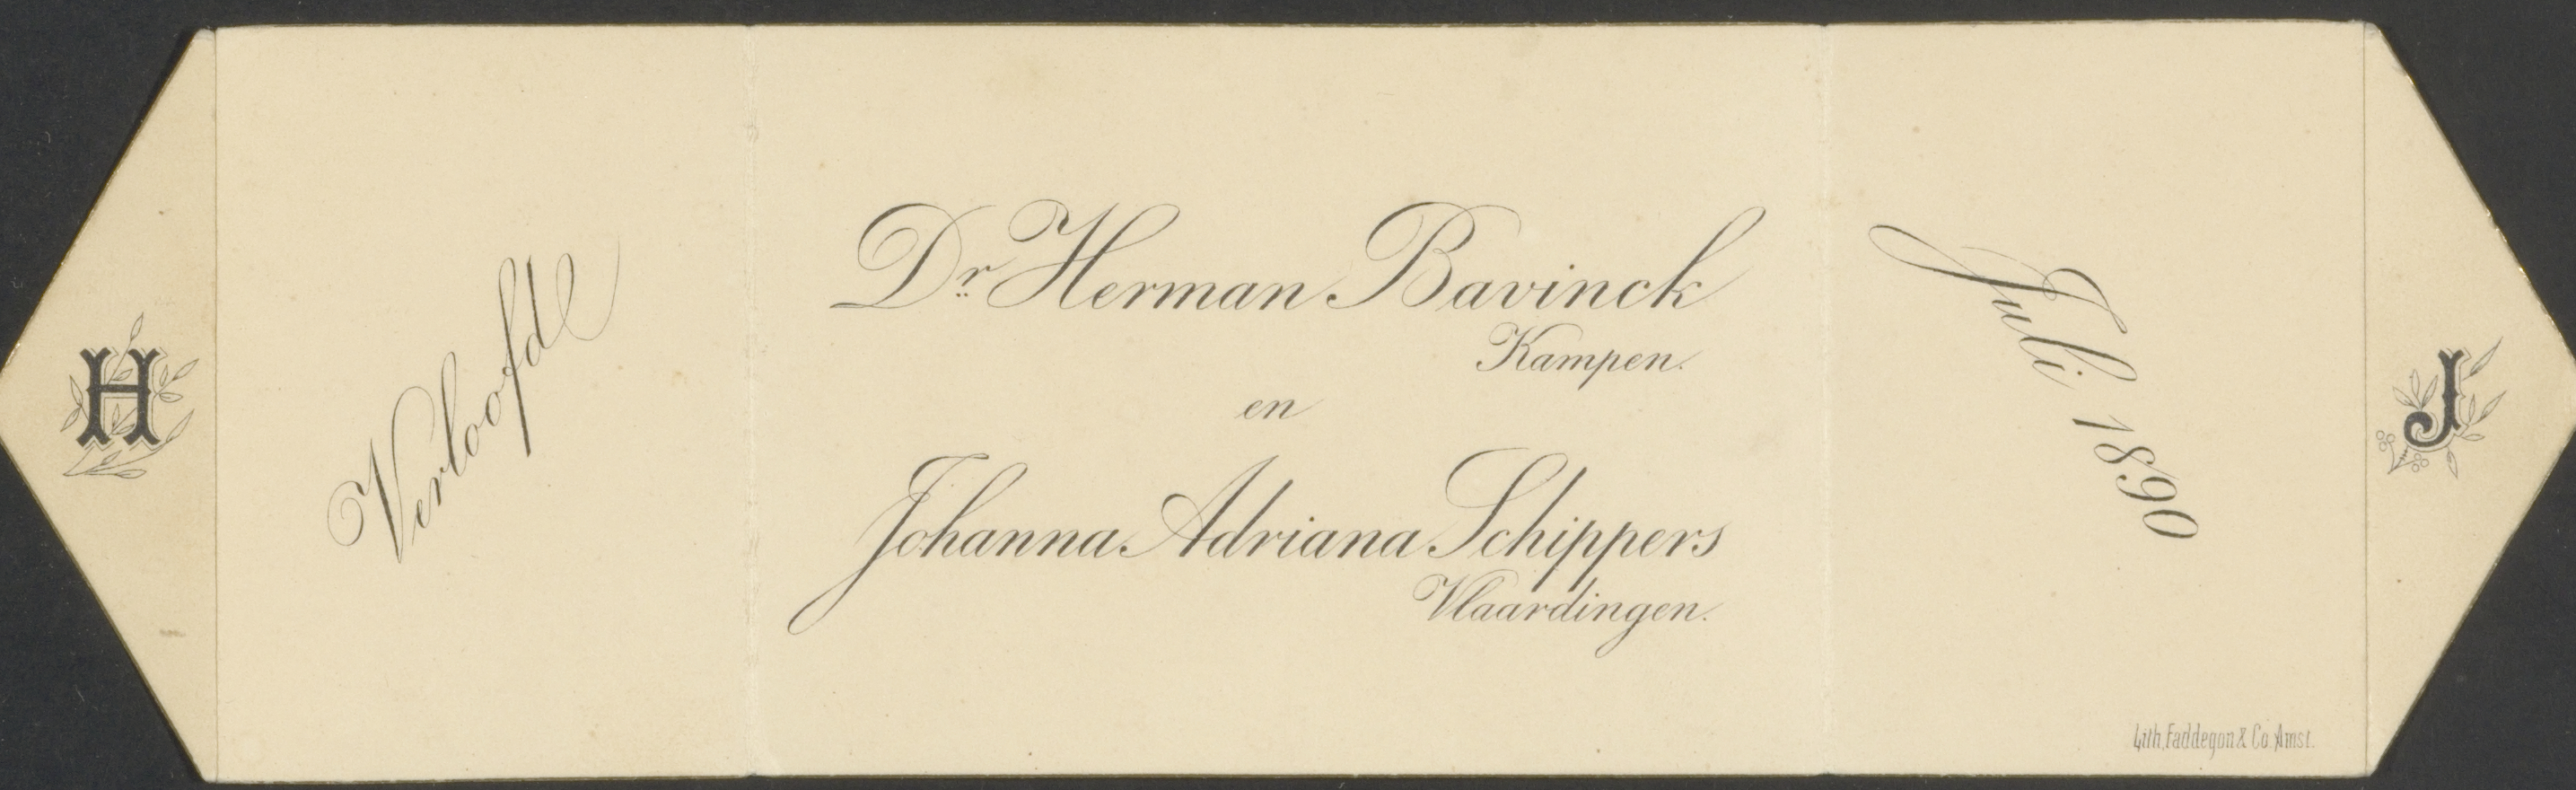 H
Verloofd
Dr. Herman Bavinck
Kampen.
en
Johanna Adriana Schippers
Vlaardingen.
Juli 1890
J
Lith. Faddegon & Co. Amst.